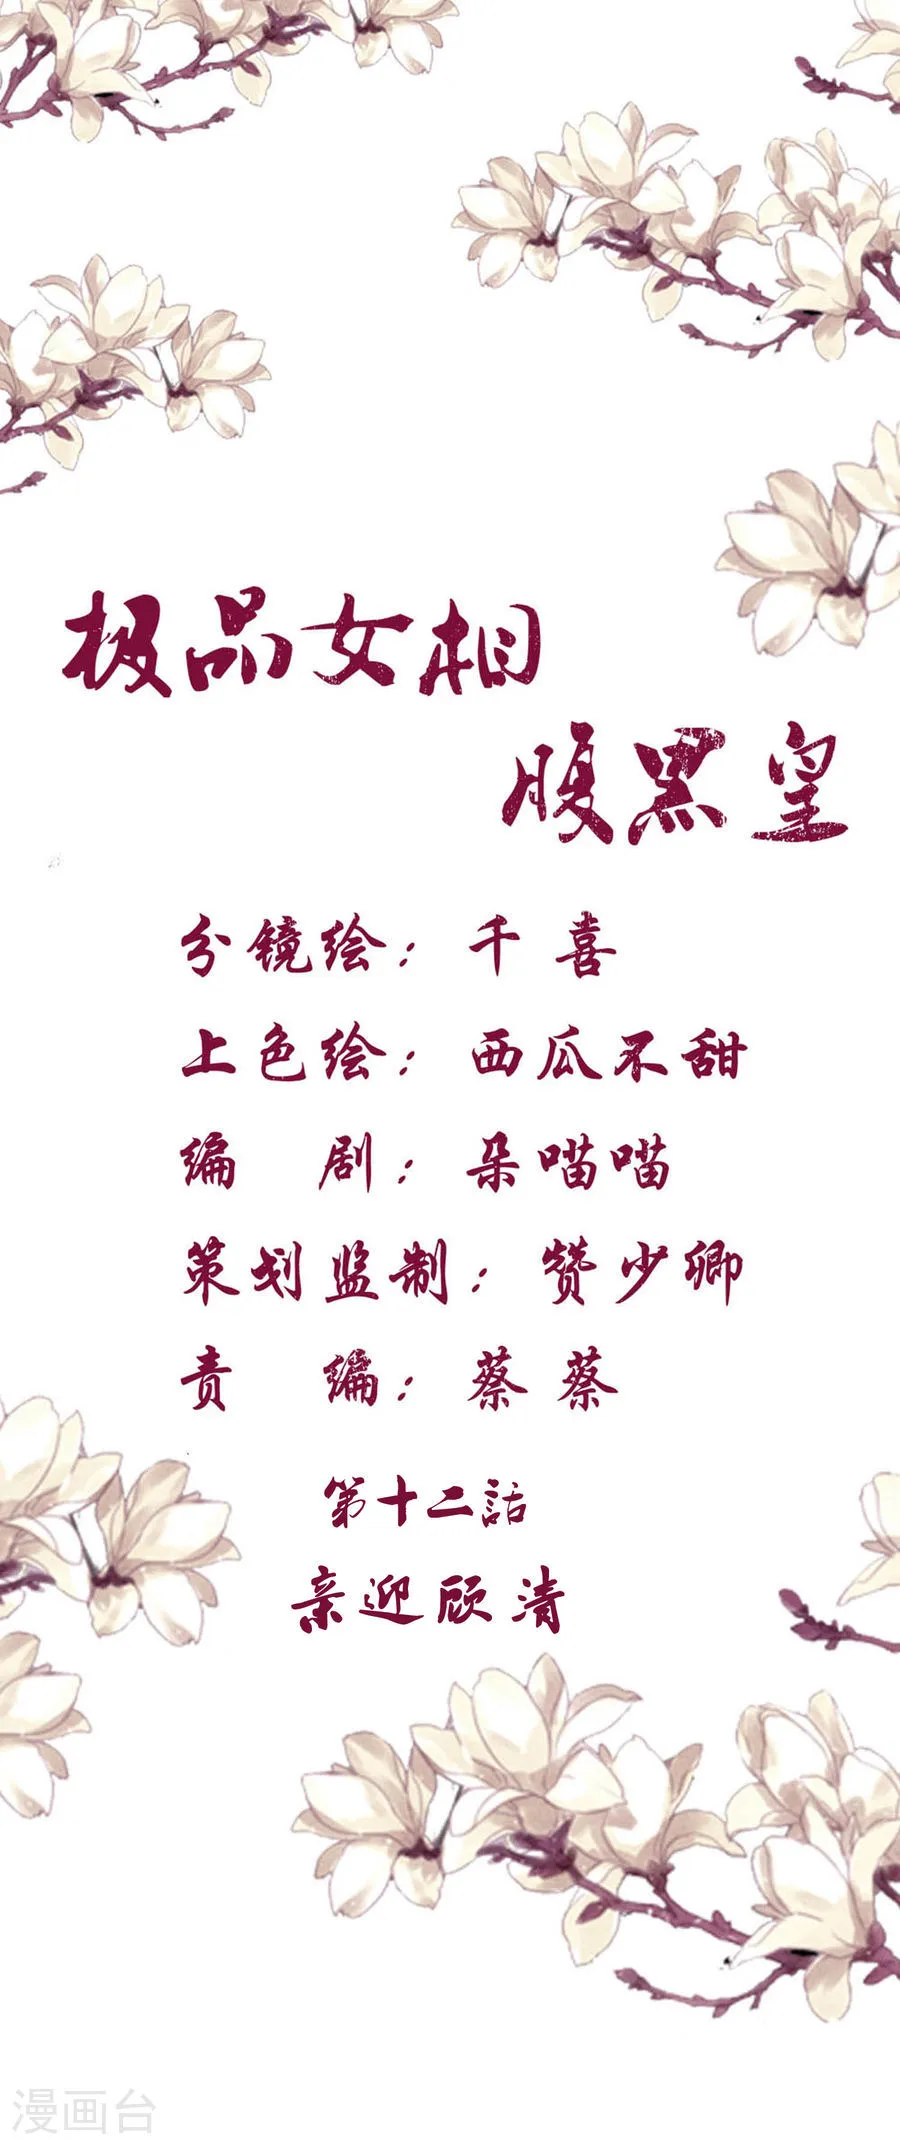 极品女相
腹黑皇
分镜绘：千喜
上色绘：西瓜不甜
编 剧：朵喵喵
策划监制：赞少卿
责 编：蔡蔡
第十二話
亲迎顾清
漫画台